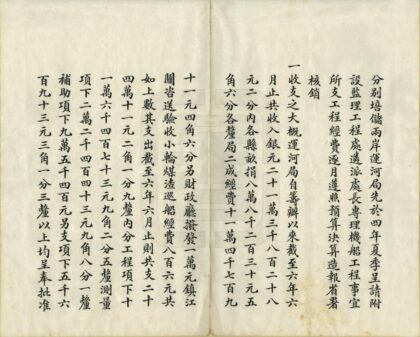 分別培儲兩岸運河局先於四年夏季呈請附
設監理工程處遴派處長專理機船工程事宜
所支工程經費逐月遵照預算決算造報省署
核銷
一收支之大概運河局自籌辦以來截至六年六
月止共收入銀元二十一萬三千八百二十八
元二分內各縣畝捐八萬八千二百三十元五
角六分各釐局二成經費十一萬四千七百九
十一元四角六分另財政廳撥發一萬元鎮江
關咨送驗收小輪煤渣巡船經費八百六元共
如上數其支出截至六年六月止則共支二十
四萬十一元二角一分九釐內分工程項下十
一萬六千四百七十三元九角二分五釐測量
項下二萬二千四百四十三元九角八分一釐
補助項下九萬五千四百元另支項下五千六
百九十三元三角一分三釐以上均呈奉批准